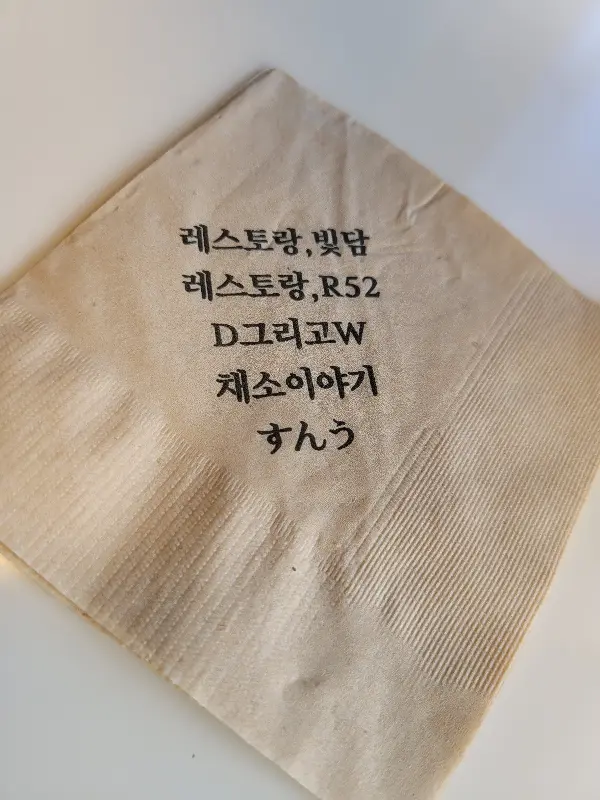 레스토랑,빛담
레스토랑,R52
D그리고W
채소이야기
すんう